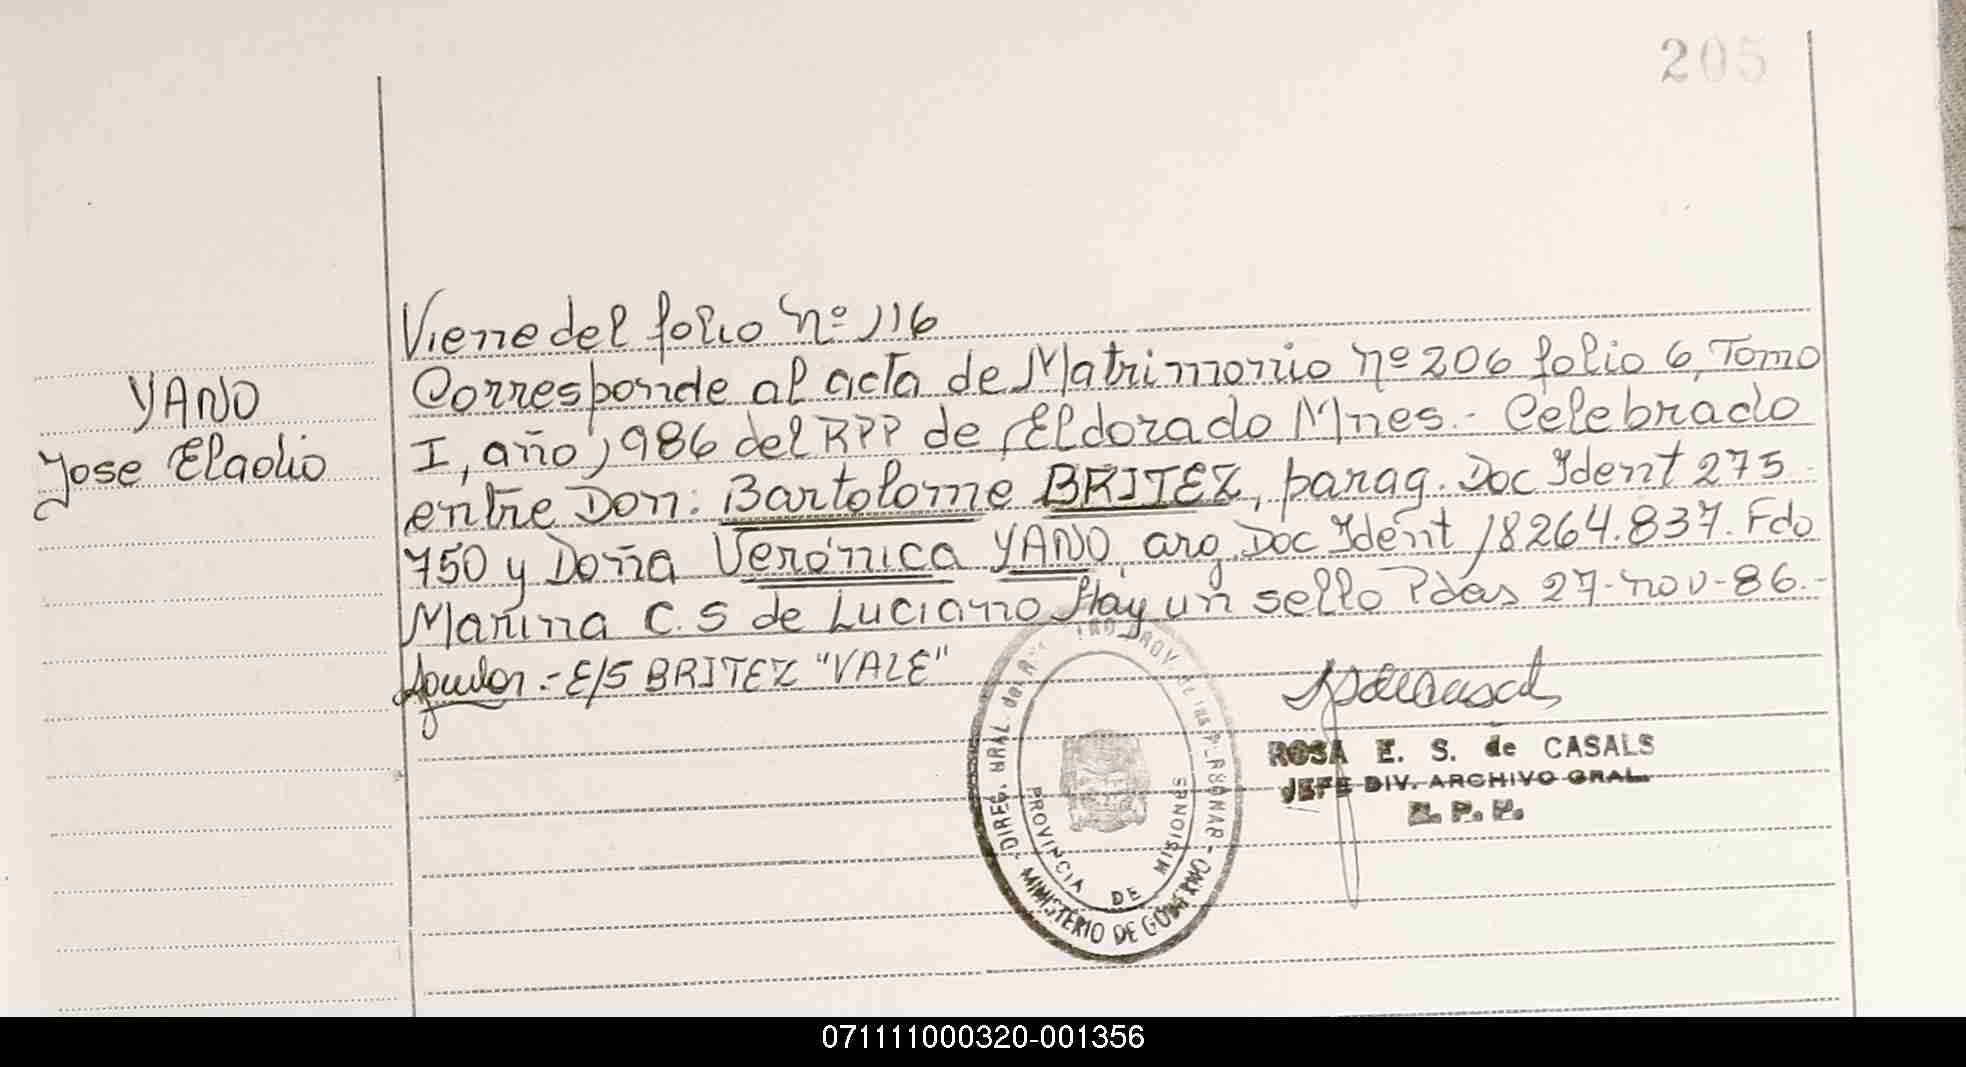 205
Viene del folio nº 116
YANO
Jose Eladio
Corresponde al acta de Matrimonio nº 206 folio 6, Tomo
I, año 1986 del RPP de Eldorado Mnes.- Celebrado
entre Don: Bartolome BRITEZ, parag. Doc Ident 275.
750 y Doña Verónica YANO, arg. Doc Ident 18264.837. Fdo
Marina C. S de Luciano Hay un sello Pdas 27-nov-86.-
E/S BRITEZ "VALE"
ROSA E. S. de CASALS
JEFE DIV. ARCHIVO GRAL.
R. P. P.
DIREC. GRAL. del
PROV. de las PERSONAS
MINISTERIO DE GOBIERNO
PROVINCIA DE MISIONES
071111000320-001356